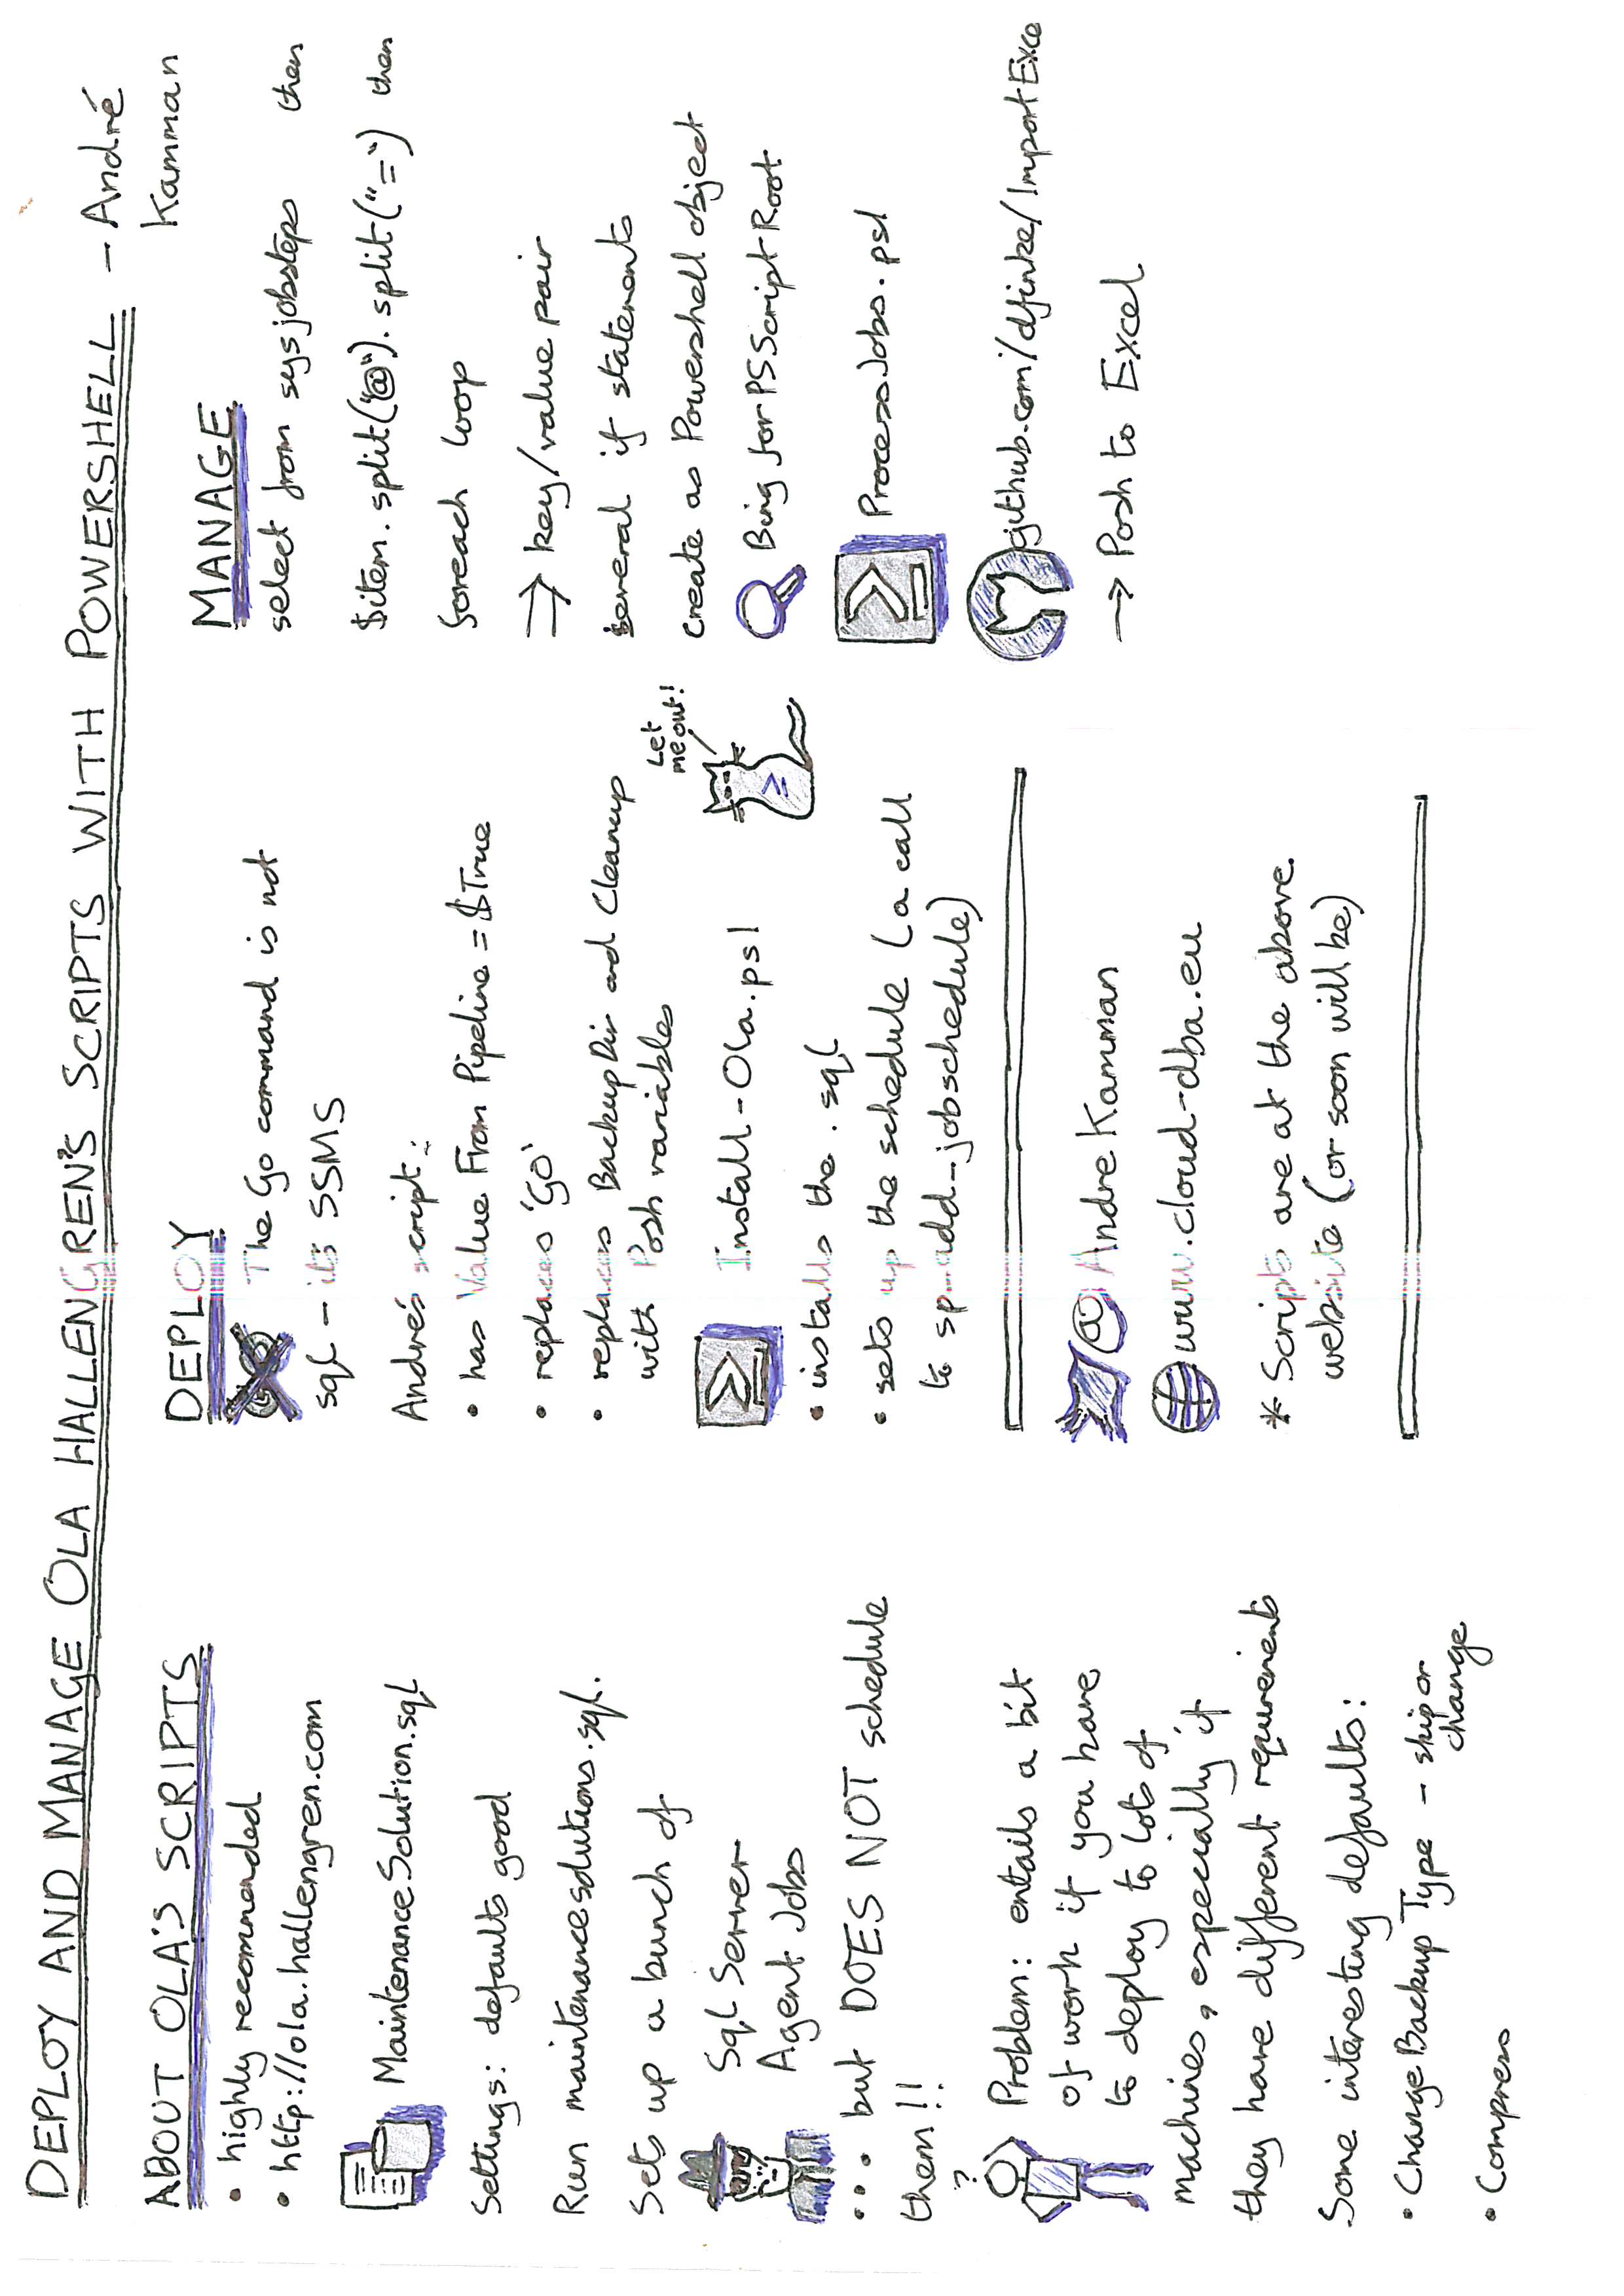 DEPLOY AND MANAGE OLA HALLENGREN'S SCRIPTS WITH POWERSHELL - André
Kamman
ABOUT OLA'S SCRIPTS
• highly recommended
• http://ola.hallengren.com
MaintenanceSolution.sql
Settings: defaults good
Run maintenancesolutions.sql.
Sets up a bunch of
Sql Server
Agent Jobs
... but DOES NOT schedule
them!!
?
Problem: entails a bit
of work if you have
to deploy to lots of
machines, especially if
they have different requirements
Some interesting defaults:
• Change Backup Type - skip or
change
• Compress
DEPLOY
GO
The Go command is not
sql - its SSMS
Andre's script:
• has Value From Pipeline = $True
• replaces 'GO'
• replaces BackupDir and Cleanup
with Posh variables
Let
me out!
Install-Ola.ps1
• installs the .sql
• sets up the schedule (a call
to sp_add_jobschedule)
@AndreKamman
www.cloud-dba.eu
* Scripts are at the above
website (or soon will be)
MANAGE
select from sysjobsteps then
$item.split("@").split("=") then
foreach loop
⇒ key/value pair
several if statements
create as Powershell object
Bing for PSScriptRoot
ProcessJobs.ps1
github.com/dfinke/ImportExce
→ Posh to Excel